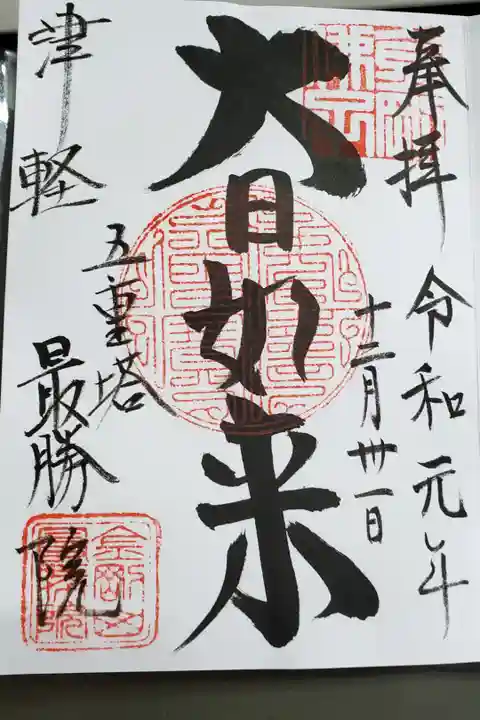 奉拝 令和元年
十二月卅一日
大日如来
五重塔
津軽 最勝院